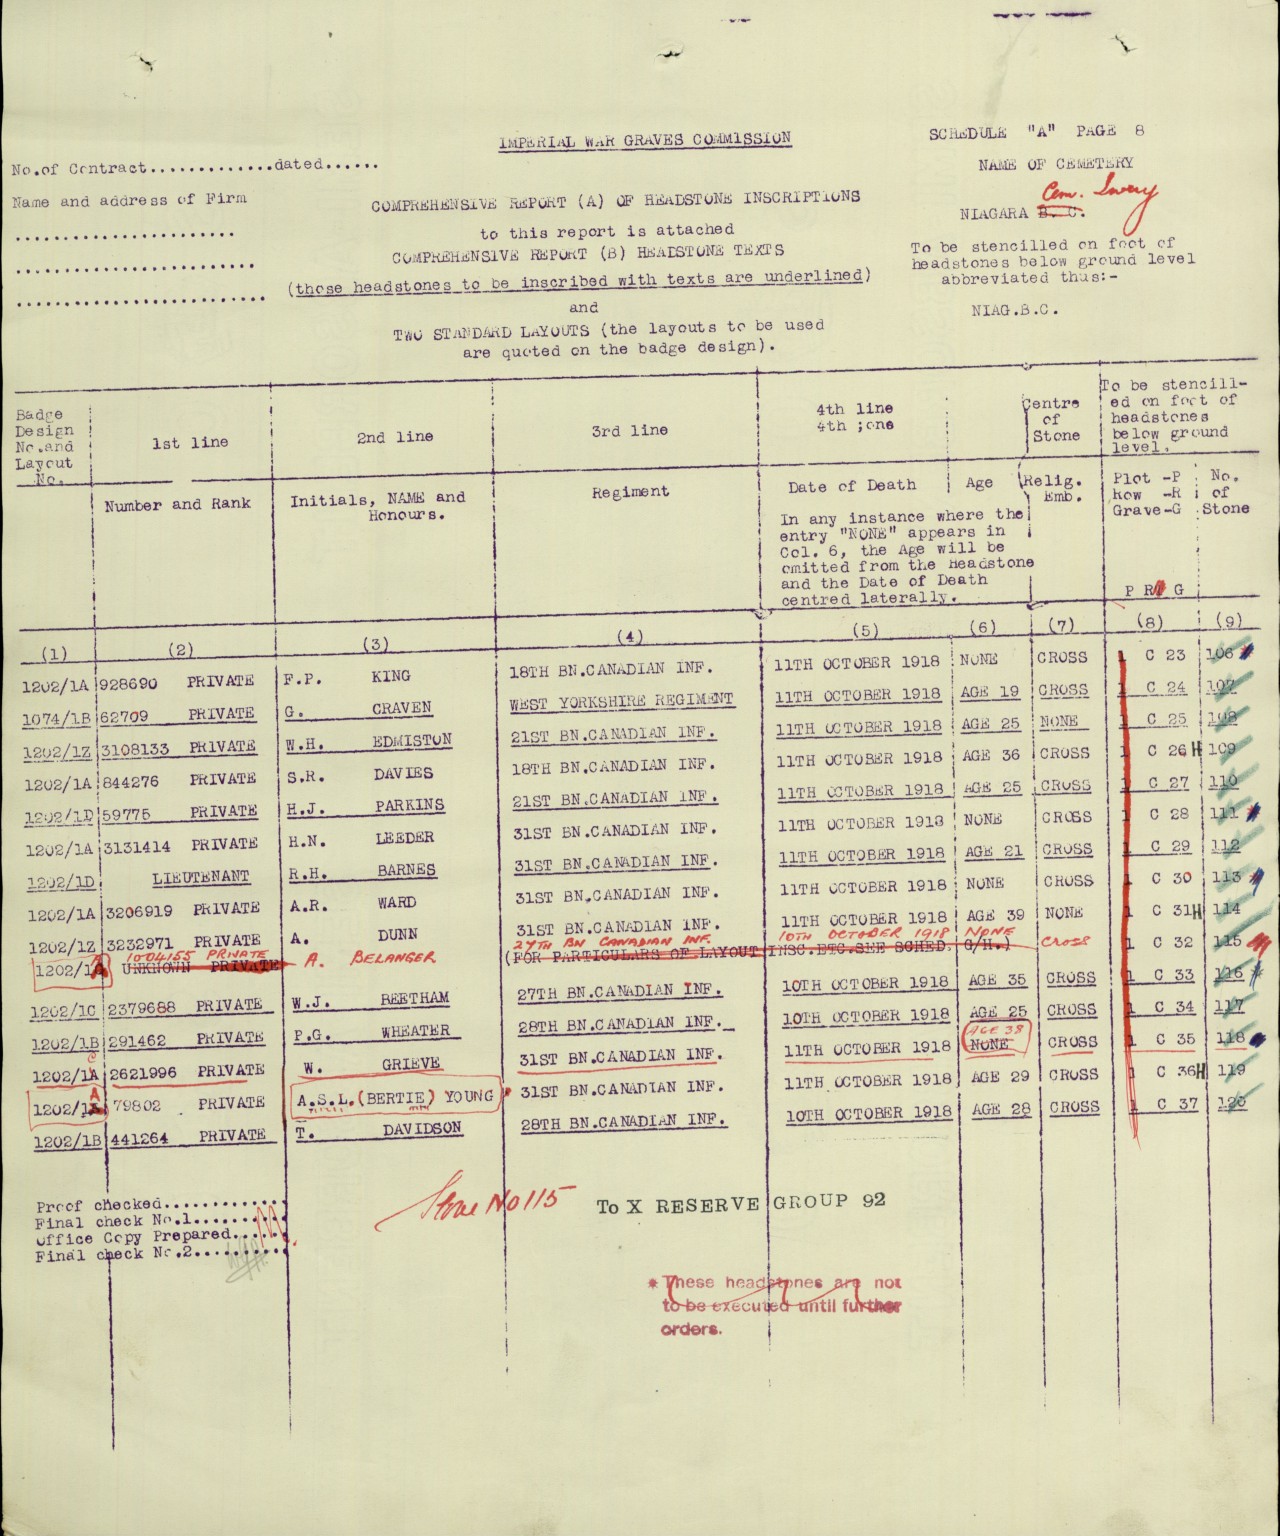 IMPERIAL WAR GRAVES COMM1SSION
SCHEDULE "A" PAGE 8
No.of Contract.............dated......
NAME OF CEMETERY
Name and address of Firm
COMPREHENSIVE REPORT (A) OF HEADSTONE INSCRIPTIONS
Cem.
NIAGARA B. C.
to this report is attached
COMPREHENSIVE REPORT (B) HEADSTONE TEXTS
(those headstones to be inscribed with texts are underlined)
and
TWO STANDARD LAYOUTS (the layouts to be used
are quoted on the badge design).
To be stencilled on foot of
headstones below ground level
abbreviated thus:-
NIAG.B.C.
Badge
Design
No.and
Layout
No.
1st line
2nd line
3rd line
4th line
4th ;one
Centre
of
Stone
To be stencill-
ed on foot of
headstones
below ground
level.
Number and Rank
Initials, NAME and
Honours.
Regiment
Date of Death
Age
Relig.
Emb.
Plot -P
Row -R
Grave-G
No.
of
Stone
In any instance where the
entry "NONE" appears in
Col. 6, the Age will be
omitted from the Headstone
and the Date of Death
centred laterally.
P R G
(1) (2) (3) (4) (5) (6) (7) (8) (9)
1202/1A 928690 PRIVATE F.P. KING 18TH BN.CANADIAN INF. 11TH OCTOBER 1918 NONE CROSS 1 C 23 106
1074/1B 62709 PRIVATE G. CRAVEN WEST YORKSHIRE REGIMENT 11TH OCTOBER 1918 AGE 19 CROSS 1 C 24 107
1202/1Z 3108133 PRIVATE W.H. EDMISTON 21ST BN.CANADIAN INF. 11TH OCTOBER 1918 AGE 25 NONE 1 C 25 108
1202/1A 844276 PRIVATE S.R. DAVIES 18TH BN.CANADIAN INF. 11TH OCTOBER 1918 AGE 36 CROSS 1 C 26 H 109
1202/1D 59775 PRIVATE H.J. PARKINS 21ST BN.CANADIAN INF. 11TH OCTOBER 1918 AGE 25 CROSS 1 C 27 110
1202/1A 3131414 PRIVATE H.N. LEEDER 31ST BN.CANADIAN INF. 11TH OCTOBER 1918 NONE CROSS 1 C 28 111
1202/1D LIEUTENANT R.H. BARNES 31ST BN.CANADIAN INF. 11TH OCTOBER 1918 AGE 21 CROSS 1 C 29 112
1202/1A 3206919 PRIVATE A.R. WARD 31ST BN.CANADIAN INF. 11TH OCTOBER 1918 NONE CROSS 1 C 30 113
1202/1Z 3232971 PRIVATE A. DUNN 31ST BN.CANADIAN INF. 11TH OCTOBER 1918 AGE 39 NONE 1 C 31 H 114
1004155 PRIVATE A. BELANGER 27TH BN CANADIAN INF. 10TH OCTOBER 1918 NONE CROSS
1202/1A UNKNOWN PRIVATE (FOR PARTICULARS OF LAYOUT INSC.ETC.SEE SCHED. G/H.) 1 C 32 115
1202/1C 2379688 PRIVATE W.J. BEETHAM 27TH BN.CANADIAN INF. 10TH OCTOBER 1918 AGE 35 CROSS 1 C 33 116
1202/1B 291462 PRIVATE P.G. WHEATER 28TH BN.CANADIAN INF. 10TH OCTOBER 1918 AGE 25 CROSS 1 C 34 117
AGE 38
C
1202/1A 2621996 PRIVATE W. GRIEVE 31ST BN.CANADIAN INF. 11TH OCTOBER 1918 NONE CROSS 1 C 35 118
A
1202/1 79802 PRIVATE A.S.L.(BERTIE) YOUNG 31ST BN.CANADIAN INF. 11TH OCTOBER 1918 AGE 29 CROSS 1 C 36 H 119
1202/1B 441264 PRIVATE T. DAVIDSON 28TH BN.CANADIAN INF. 10TH OCTOBER 1918 AGE 28 CROSS 1 C 37 120
Proof checked..............
Final check No.1.........
Office Copy Prepared......
Final check No.2..........
Stone No 115
To X RESERVE GROUP 92
* These headstones are not
to be executed until further
orders.